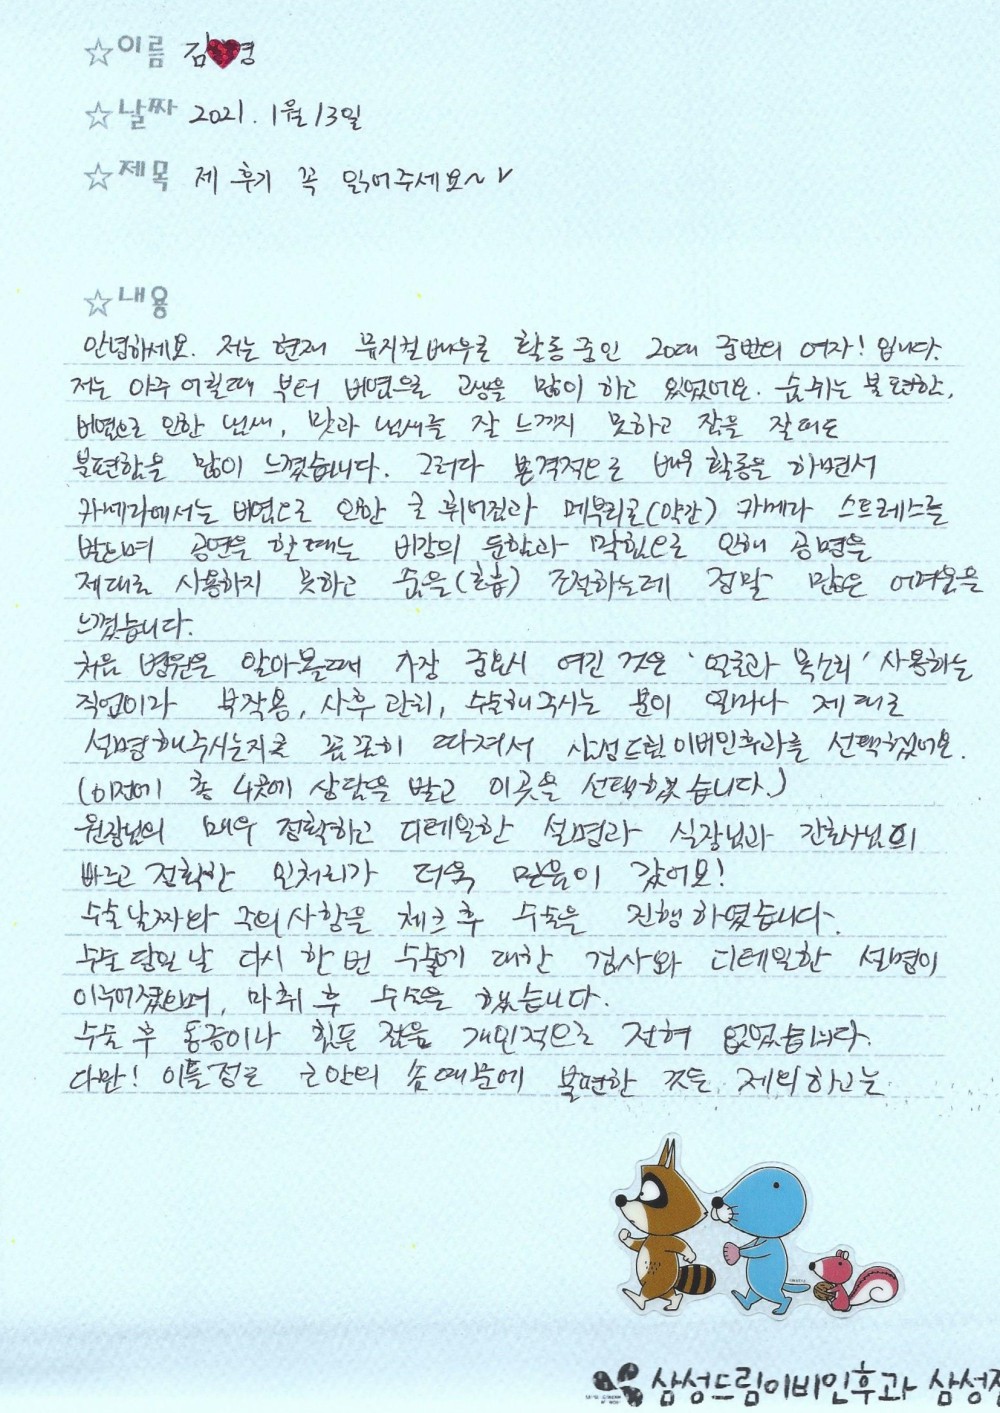 ☆이름 김♥영
☆날짜 2021. 1월 13일
☆제목 제 후기 꼭 읽어주세요~ v
☆내용
안녕하세요. 저는 현재 뮤지컬배우로 활동 중인 20대 중반의 여자! 입니다.
저는 아주 어릴때 부터 비염으로 고생을 많이 하고 있었어요. 숨쉬는 불편함,
비염으로 인한 냄새, 맛과 냄새를 잘 느끼지 못하고 잠을 잘때도
불편함을 많이 느꼈습니다. 그러다 본격적으로 배우 활동을 하면서
카메라에서는 비염으로 인한 코 휘어짐과 메부리코(약간) 카메라 스트레스를
받으며 공연을 할때는 비강의 둔함과 막힘으로 인해 공명을
제대로 사용하지 못하고 숨을(호흡) 조절하는데 정말 많은 어려움을
느꼈습니다.
처음 병원을 알아볼때 가장 중요시 여긴 것은 '얼굴과 목소리' 사용하는
직업이라 부작용, 사후관리, 수술해주시는 분이 얼마나 제대로
설명해주시는지를 꼼꼼히 따져서 삼성드림이비인후과를 선택했어요.
(이전에 총 4곳에 상담을 받고 이곳을 선택했습니다.)
원장님의 매우 정확하고 디테일한 설명과 실장님과 간호사님의
빠르고 정확한 일처리가 더욱 믿음이 갔어요!
수술날짜와 주의사항을 체크 후 수술을 진행하였습니다.
수술 당일 날 다시 한 번 수술에 대한 검사와 디테일한 설명이
이루어졌으며, 마취 후 수술을 했습니다.
수술 후 통증이나 힘든 점은 개인적으로 전혀 없었습니다.
다만! 이틀정도 코안의 솜때문에 불편한 것을 제외하고는
삼성드림이비인후과 삼성점